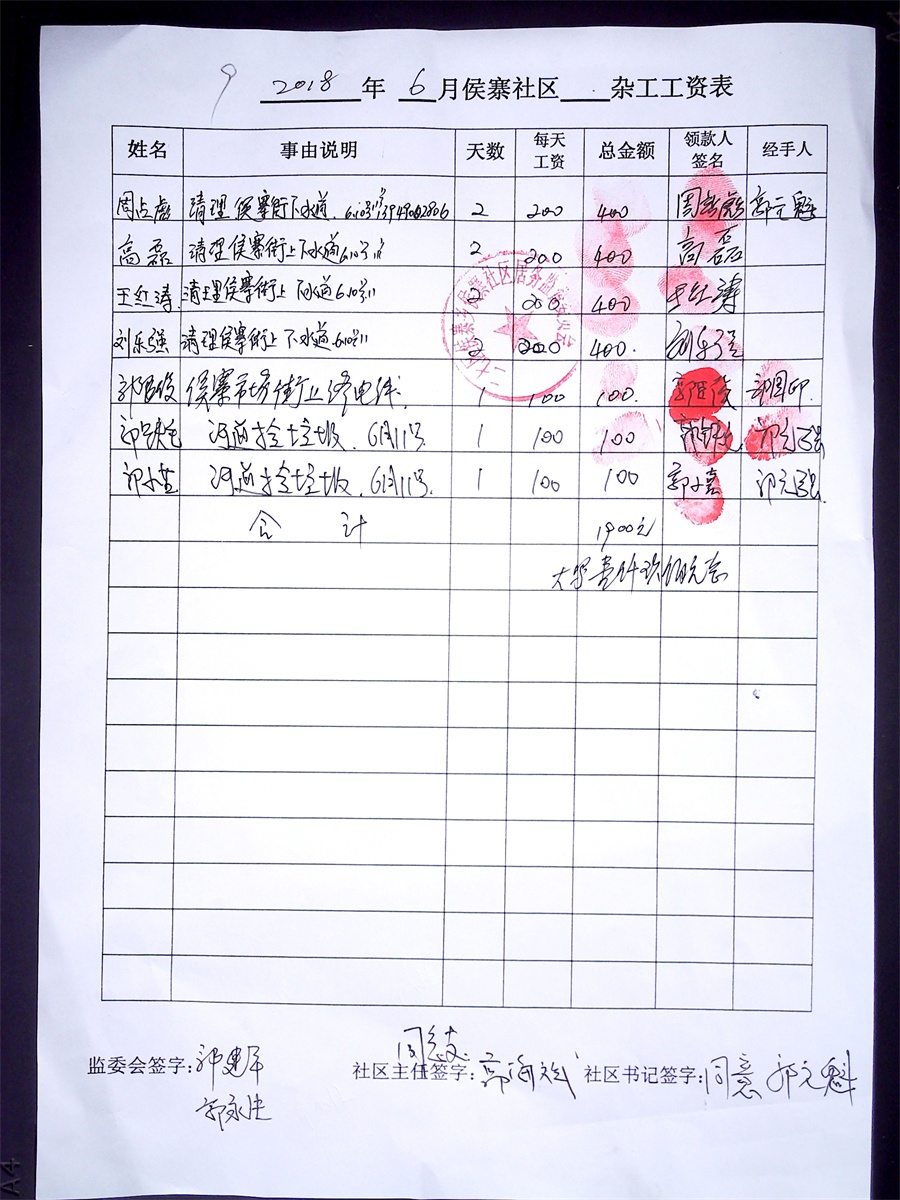 2018 年 6 月侯寨社区 杂工工资表
姓名 事由说明 天数 每天工资 总金额 领款人签名 经手人
周占彪 清理侯寨街下水道 6.10号 13949002806 2 200 400 周占彪
高磊 清理侯寨街上下水道6.10号11 2 200 400 高磊
王红涛 清理侯寨街上下水道6.10号11 2 200 400 王红涛
刘东强 清理侯寨街上下水道6.10号11 2 200 400. 刘东强
侯寨市场街上 电线 1 100 100.
河道捡垃圾. 6月11号 1 100 100
河道捡垃圾. 6月11号. 1 100 100
合 计 1900元
大写壹仟玖佰元
监委会签字: 郭建军
社区主任签字: 同意 社区书记签字: 同意 郭元魁
郭永
侯寨社区居务监
A4